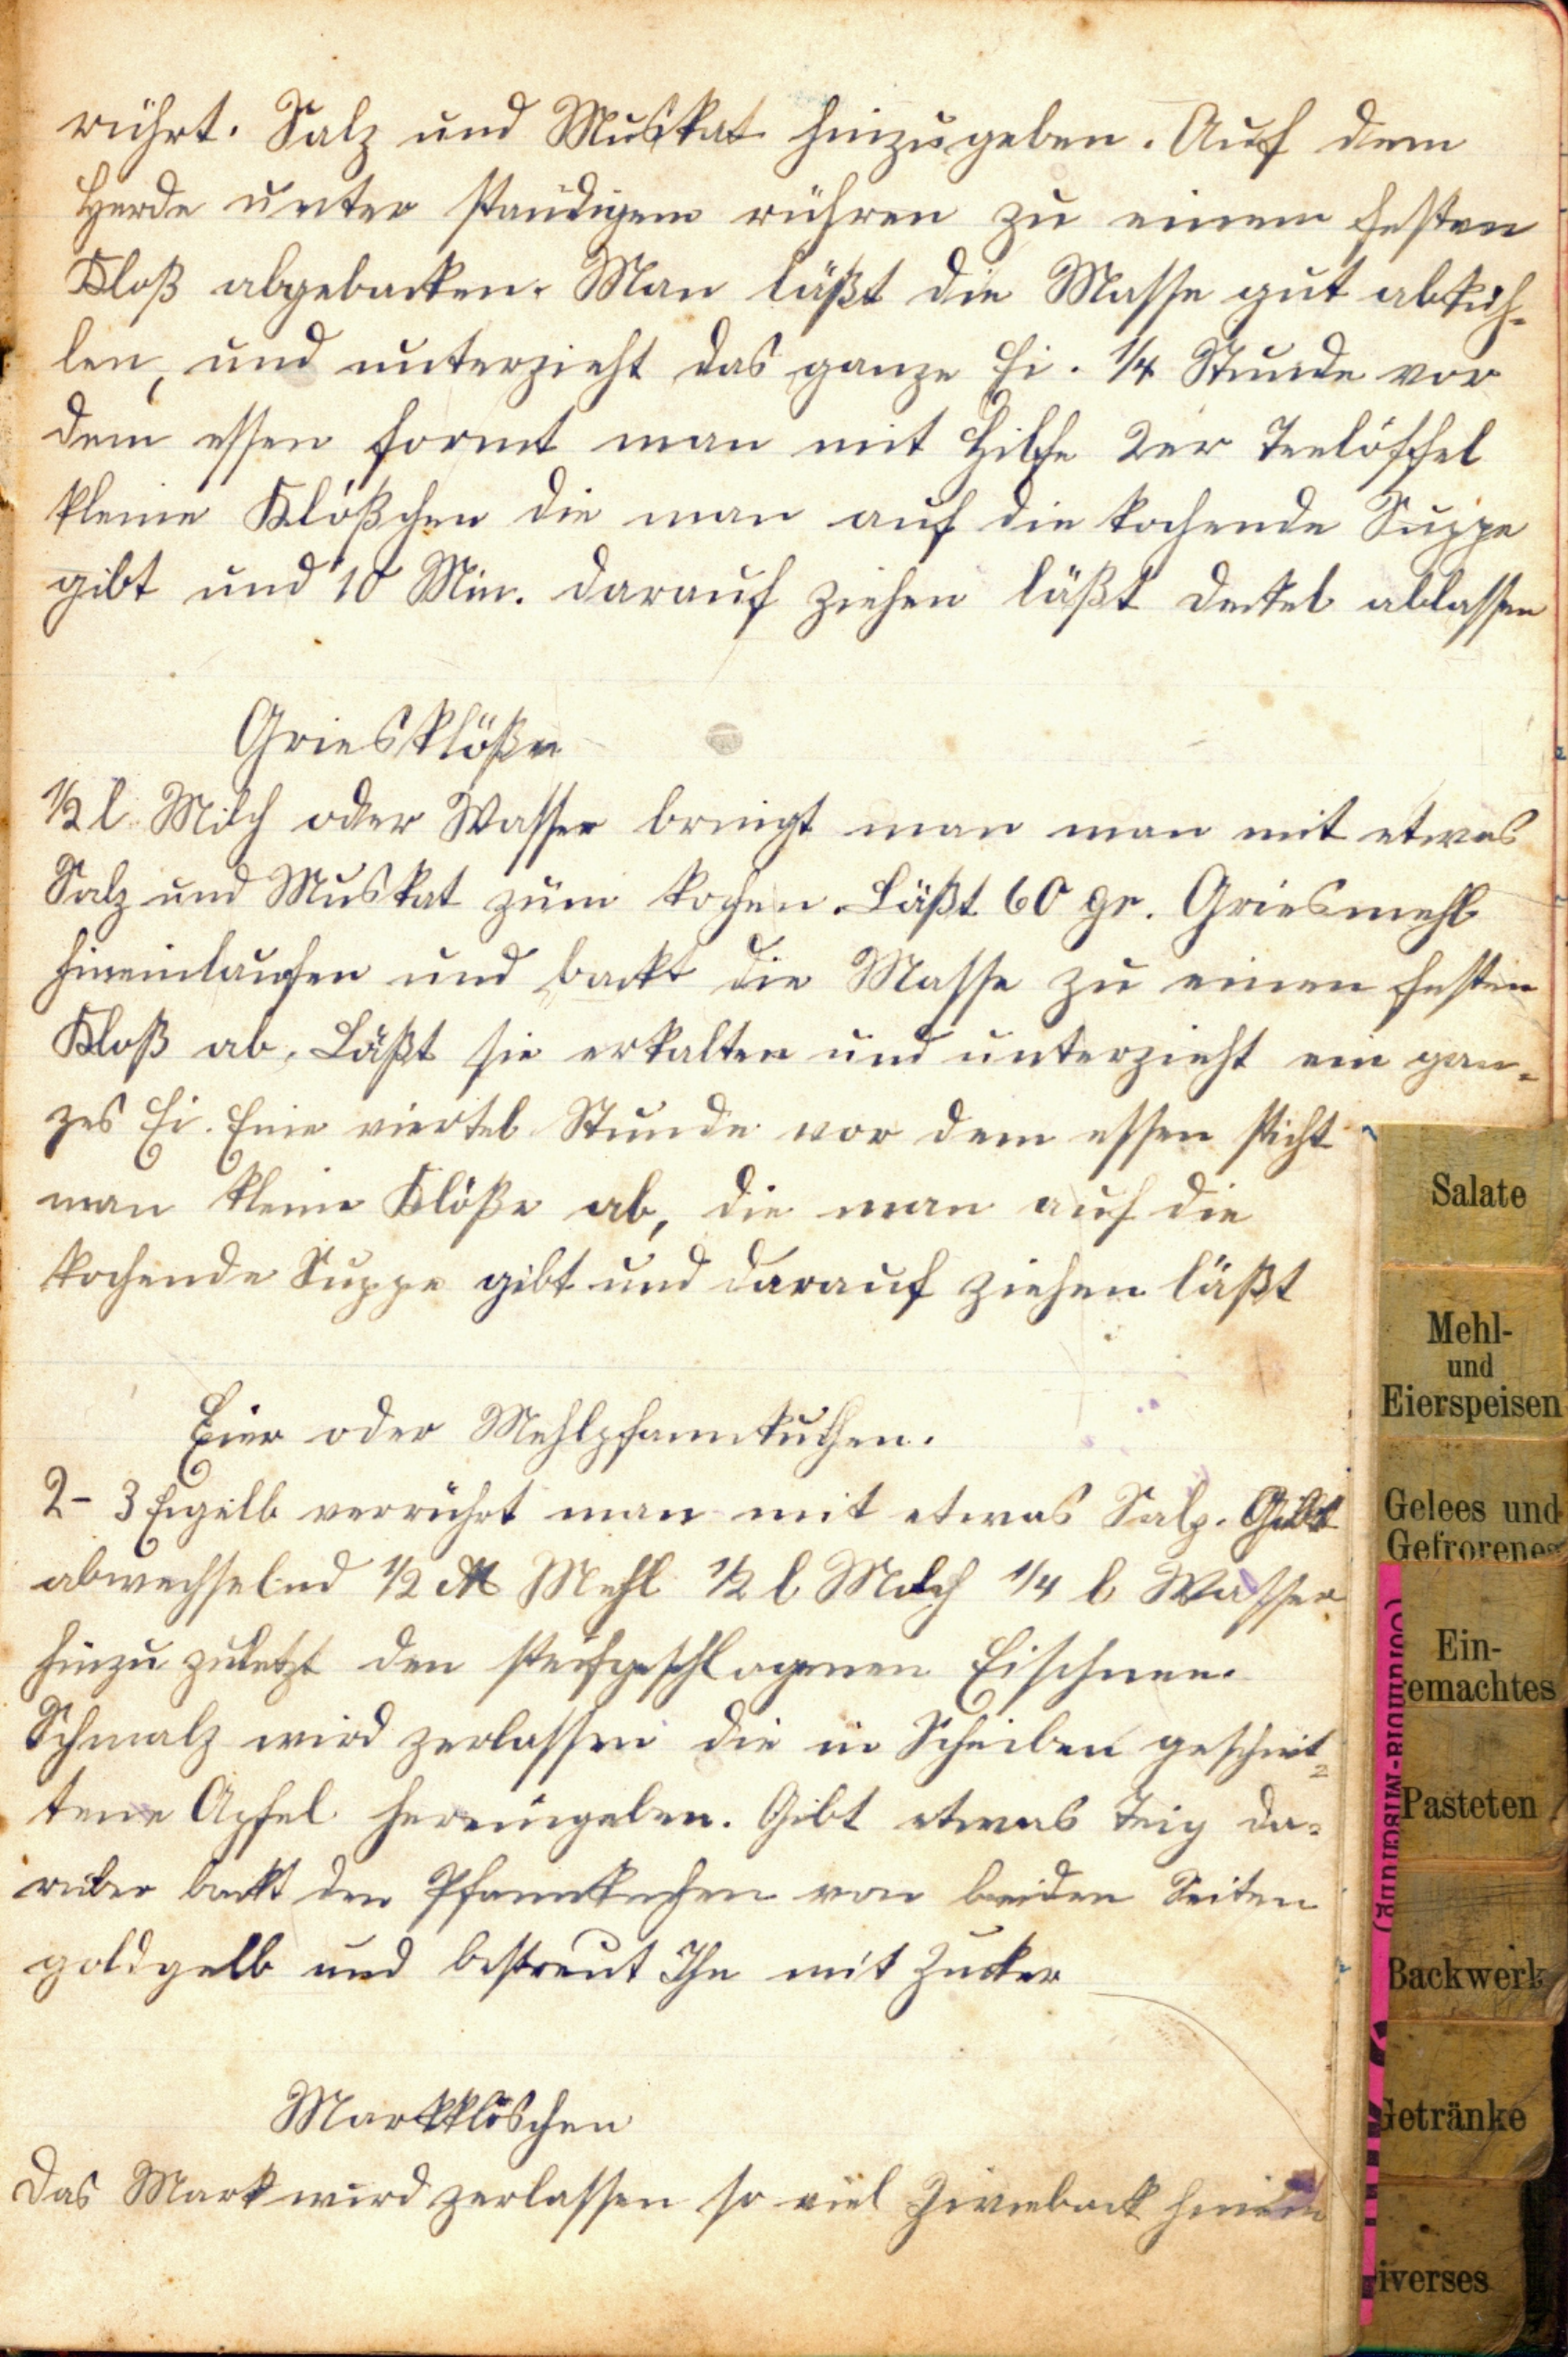 rührt. Salz und Muskat hinzugeben. Auf dem
Herde unter ständigem rühren zu einem festen
Kloß abgebacken. Man läßt die Masse gut abküh-
len, und unterzieht das ganze Ei. 1/4 Stunde vor
dem essen formt man mit Hilfe 2er Teelöffel
kleine Klößchen die man auf die kochende Suppe
gibt und 10 Min. darauf ziehen läßt Deckel ablassen
Griesklöße
1/2 l Milch oder Wasser bringt man man mit etwas
Salz und Muskat zum kochen. Läßt 60 gr. Griesmehl
hineinlaufen und backt die Masse zu einen festen
Kloß ab. Läßt sie erkalten und unterzieht ein gan-
zes Ei. Eine viertel Stunde vor dem essen sticht
man kleine Klöße ab, die man auf die
kochende Suppe gibt und darauf ziehen läßt
Eier oder Mehlpfannkuchen.
2- 3 Eigelb verrührt man mit etwas Salz. Gibt
abwechselnd 1/2 ℔ Mehl 1/2 l Milch 1/4 l Wasser
hinzu zuletzt den steifgeschlagenen Eischnee.
Schmalz wird zerlassen die in Scheiben geschnit-
tene Apfel hereingeben. Gibt etwas Teig da-
rüber backt den Pfannkuchen von beiden Seiten
goldgelb und bestreut Ihn mit Zucker
Markklöschen
Das Mark wird zerlassen so viel Zwieback hinein
Salate
Mehl-
und
Eierspeisen
Gelees und
Gefrorenes
Ein-
gemachtes
Pasteten
Backwerk
Getränke
iverses